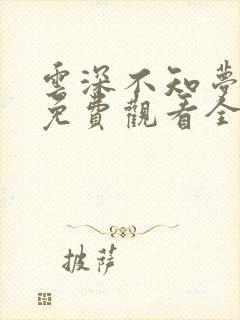 雲深不知夢
免費觀看全
披薩